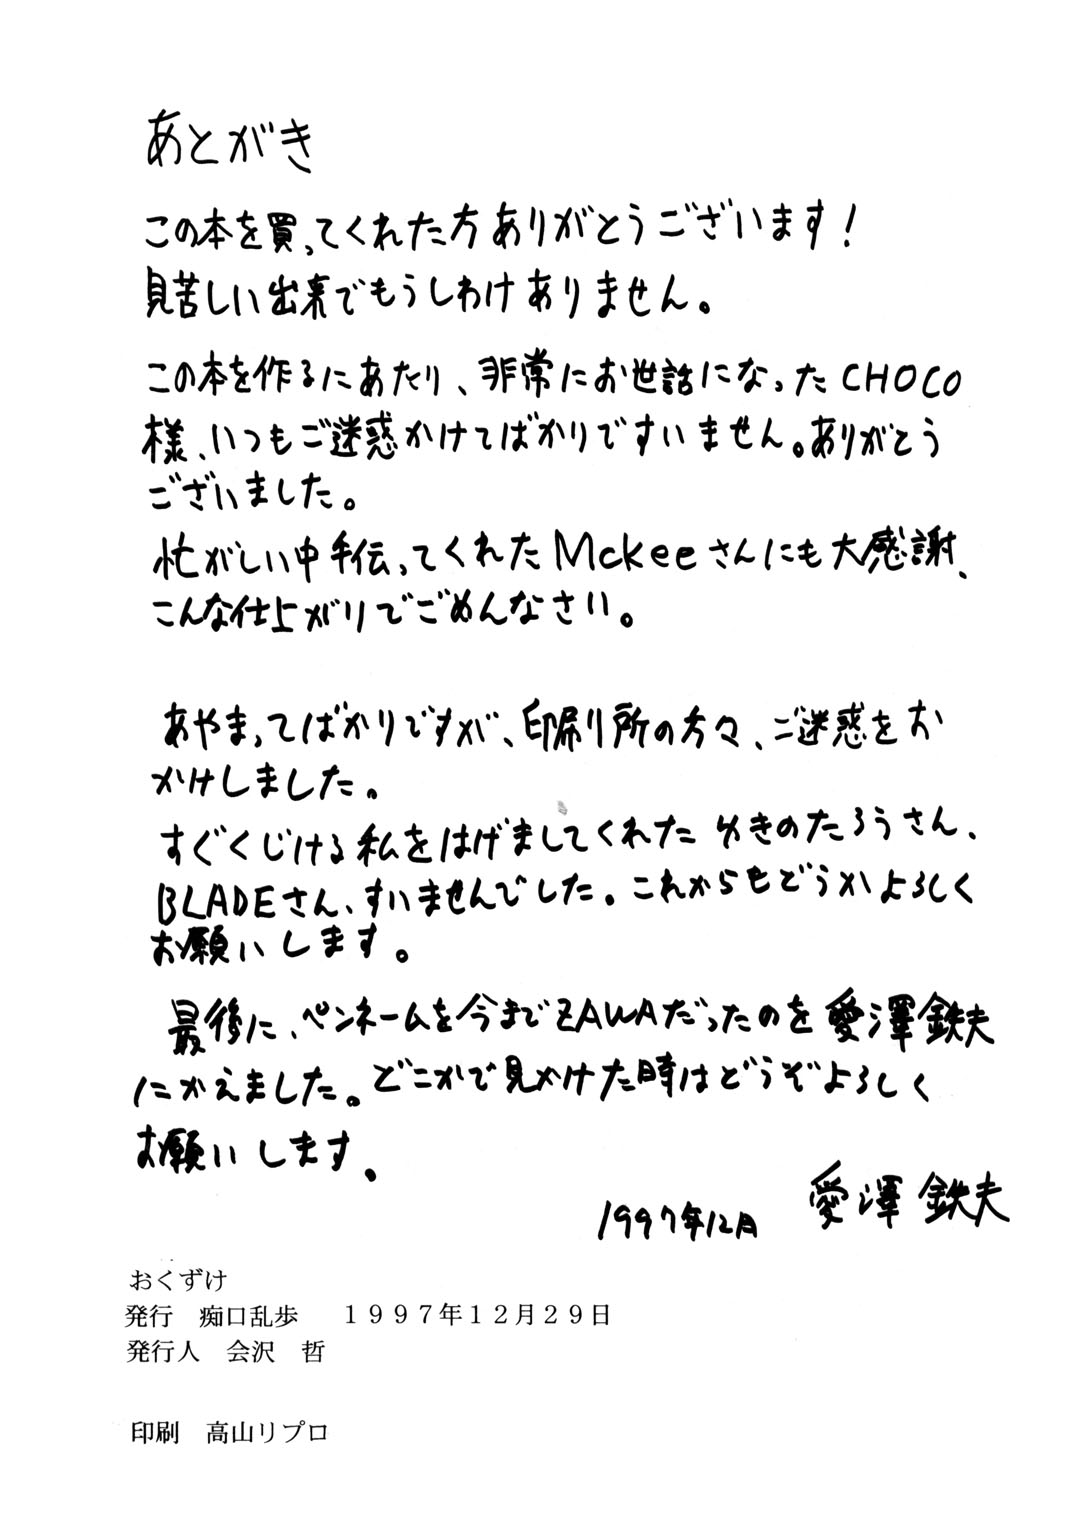 あとがき
この本を買ってくれた方ありがとうございます！
見苦しい出来でもうしわけありません。
この本を作るにあたり、非常にお世話になったCHOCO
様、いつもご迷惑かけてばかりですいません。ありがとう
ございました。
忙がしい中手伝ってくれたMckeeさんにも大感謝、
こんな仕上がりでごめんなさい。
あやまってばかりですが、印刷所の方々、ご迷惑をお
かけしました。
すぐくじける私をはげましてくれたゆきのたろうさん、
BLADEさん、すいませんでした。これからもどうかよろしく
お願いします。
最後に、ペンネームを今までZAWAだったのを愛澤鉄夫
にかえました。どこかで見かけた時はどうぞよろしく
お願いします。
1997年12月 愛澤鉄夫
おくずけ
発行　痴口乱歩　１９９７年１２月２９日
発行人　会沢　哲
印刷　高山リプロ